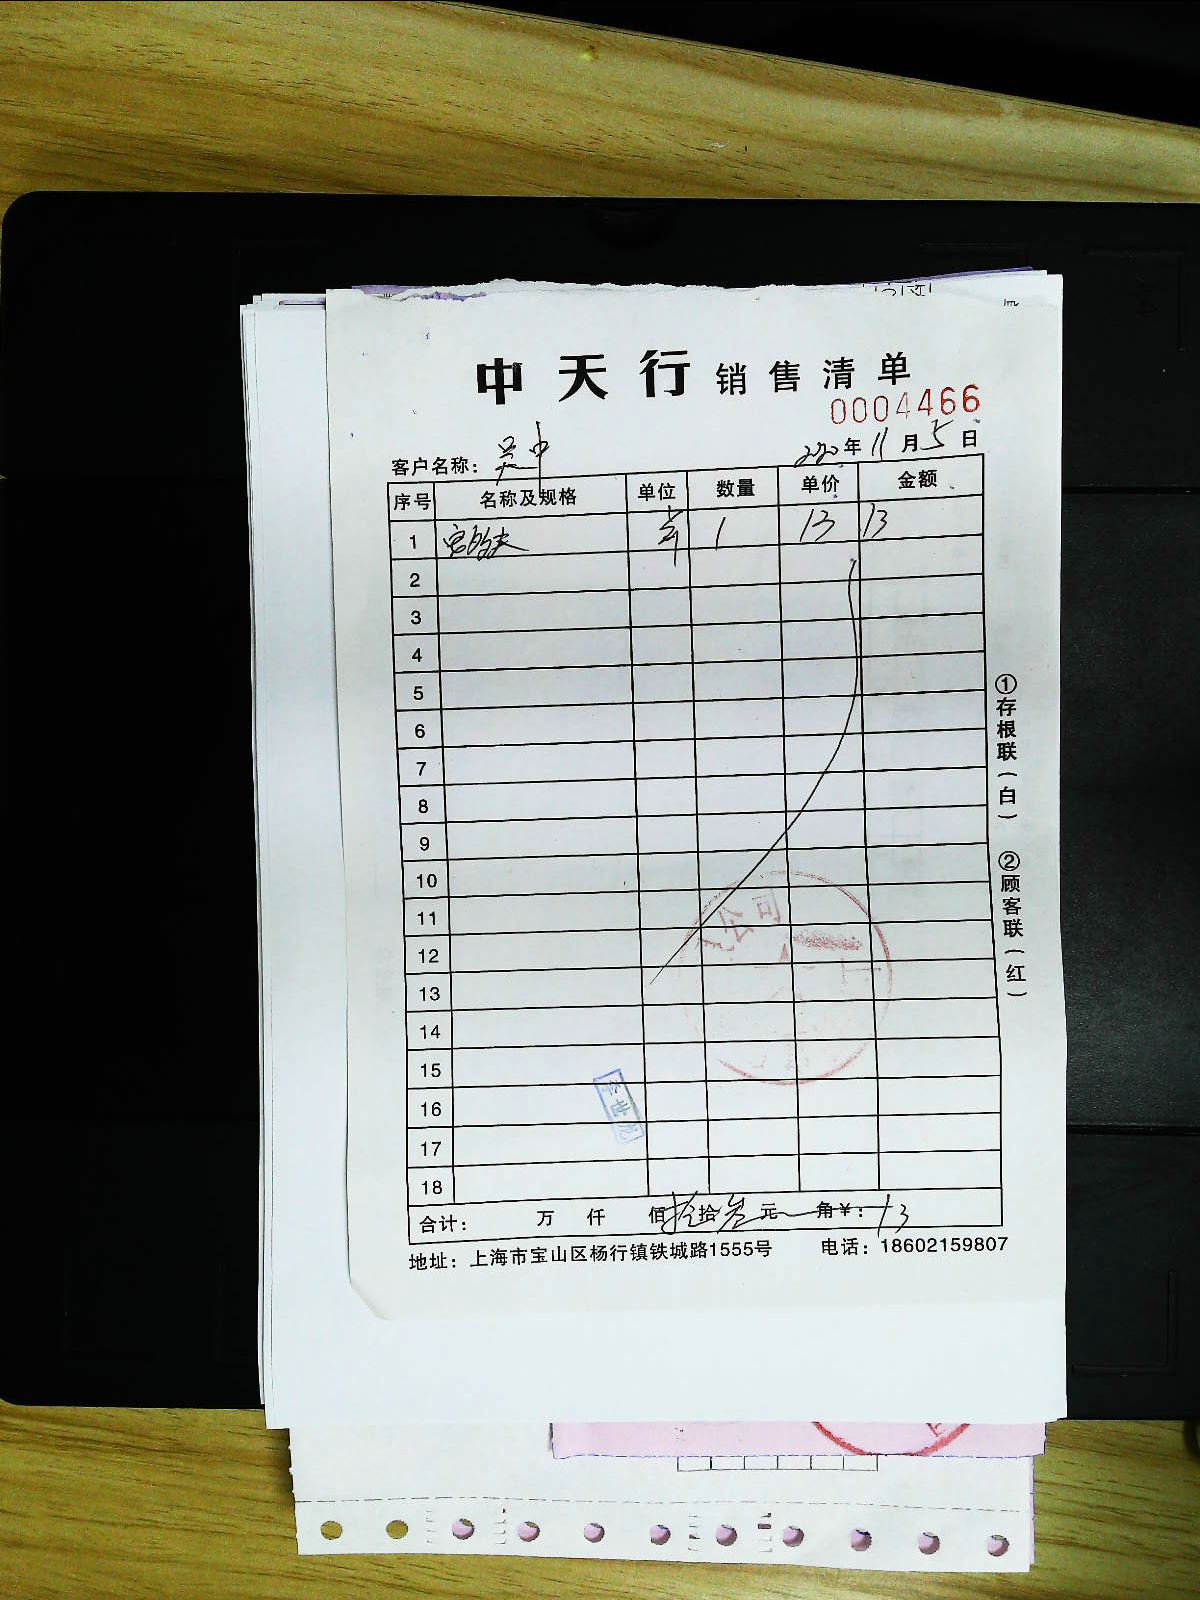 中天行 销售清单
0004466
客户名称：吴中 2020年11月5日
序号 名称及规格 单位 数量 单价 金额
1 1 13 13
2
3
4
5
6
7
8
9
10
11
12
13
14
15
16
17
18
公司
李世龙
合计： 万 仟 佰 壹拾叁元 角¥：13
地址：上海市宝山区杨行镇铁城路1555号 电话：18602159807
①存根联（白） ②顾客联（红）